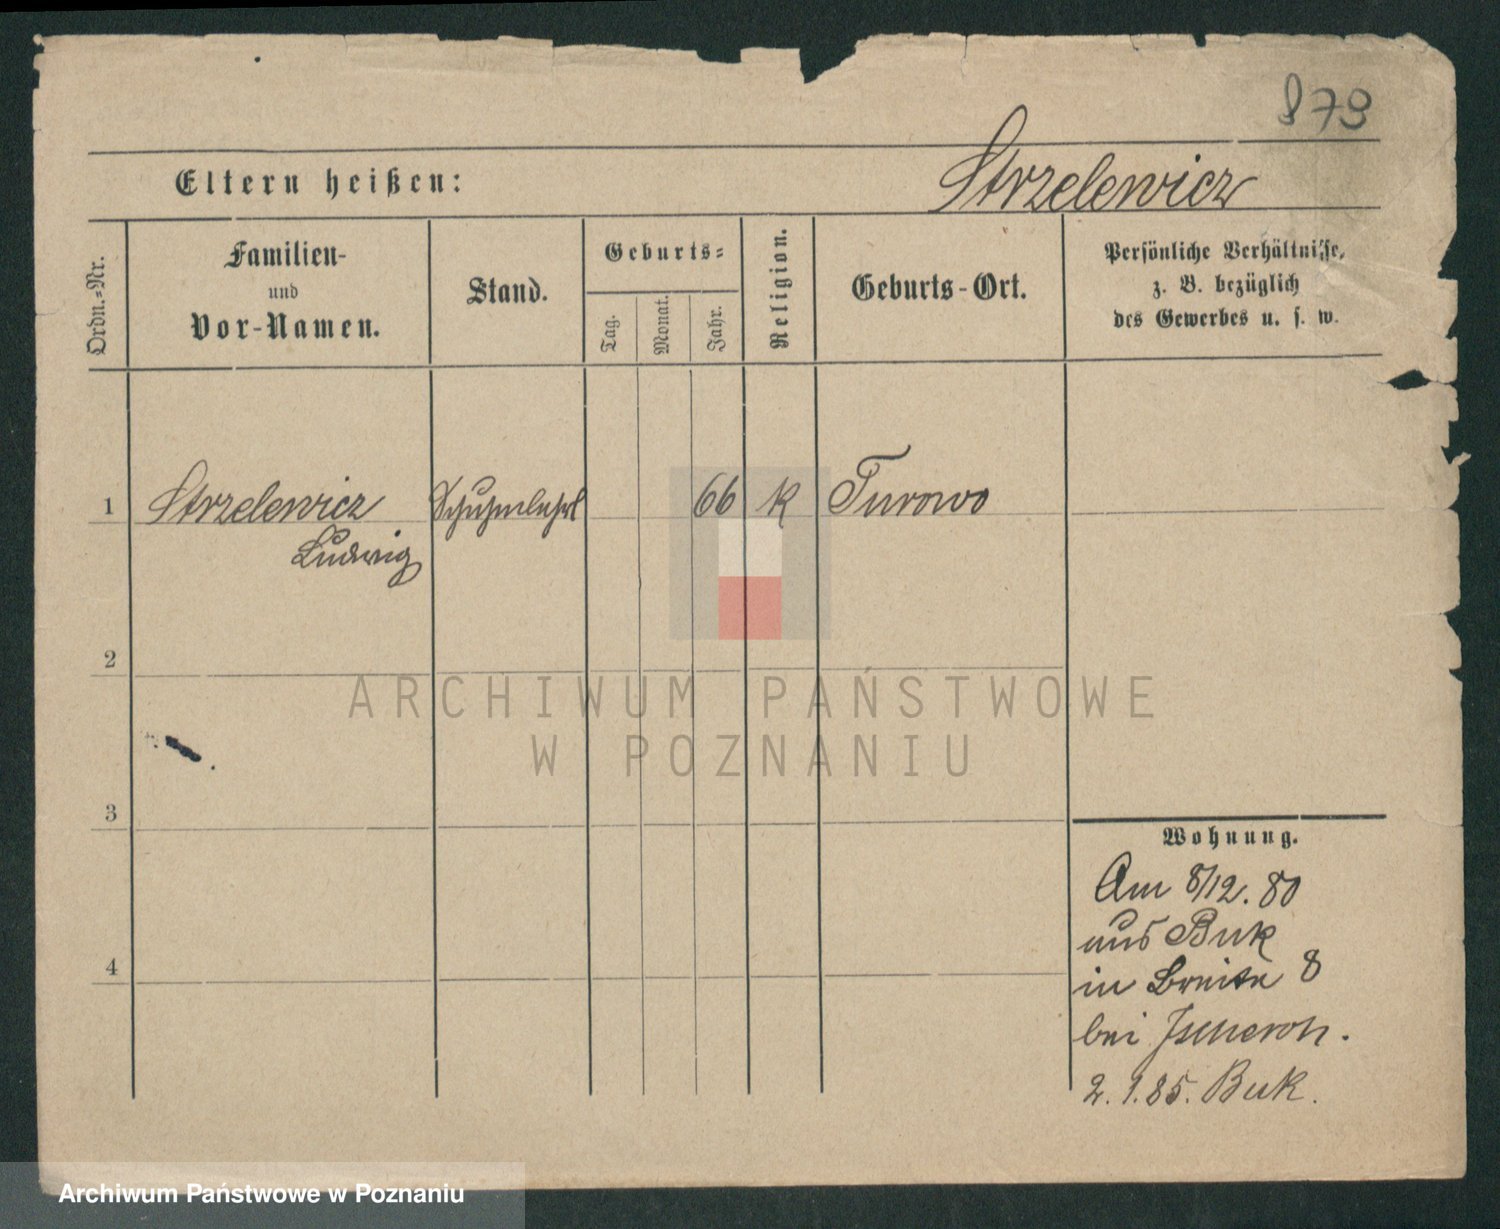 879
Eltern heißen: Strzelewicz
Ordn.=Nr.
Familien-
und
Vor-Namen.
Stand.
Geburts=
Tag.
Monat.
Jahr.
Religion.
Geburts-Ort.
Persönliche Verhältnisse,
z. B. bezüglich
des Gewerbes u. s. w.
1 Strzelewicz Schuhmlehrl 66 k Turowo
Ludwig
2
3
4
Wohnung.
Am 8/12. 80
aus Buk
in Breite 8
bei
2. 1. 85. Buk.
ARCHIWUM PAŃSTWOWE
W POZNANIU
Archiwum Państwowe w Poznaniu